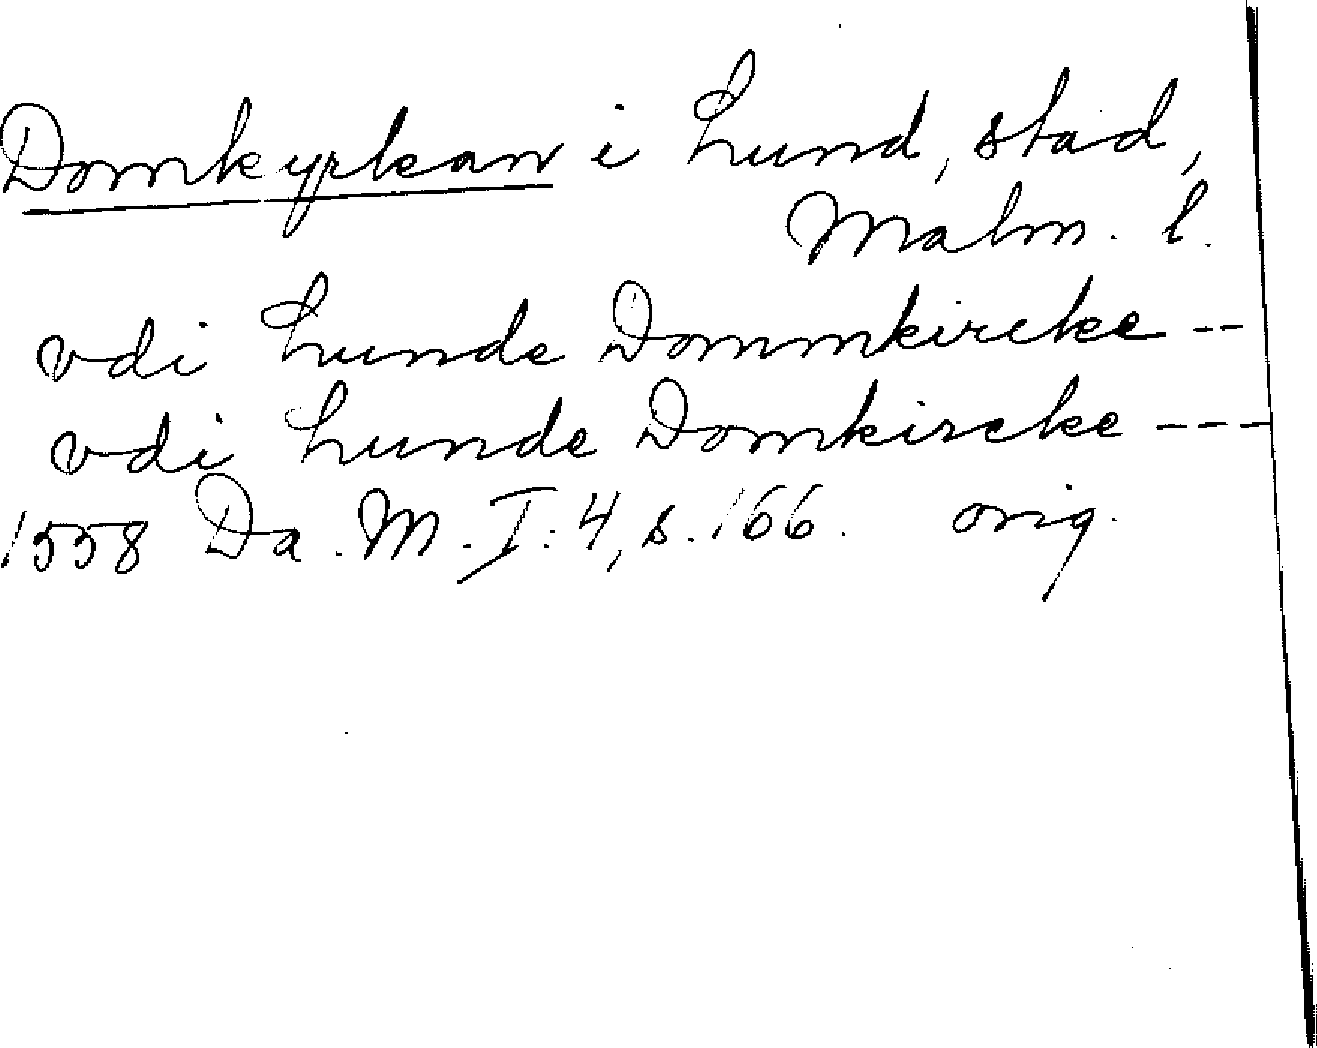 Domkyrkan i Lund, stad,
Malm. l.
vdi Lunde Dommkircke --
vdi Lunde Domkircke ---
1558 Da. M. I: 4, s. 166. orig.